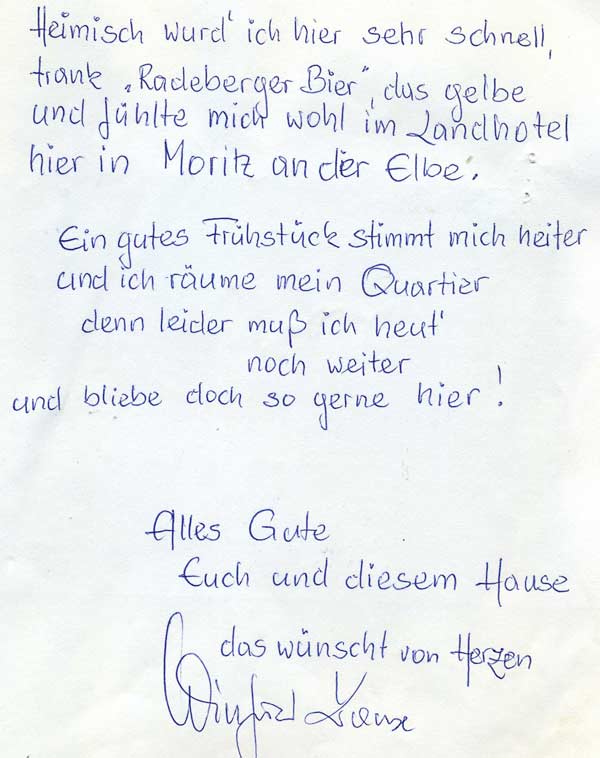 Heimisch wurd' ich hier sehr schnell,
trank „Radeberger Bier", das gelbe
und fühlte mich wohl im Landhotel
hier in Moritz an der Elbe.
Ein gutes Frühstück stimmt mich heiter
und ich räume mein Quartier
denn leider muß ich heut'
noch weiter
und bliebe doch so gerne hier!
Alles Gute
Euch und diesem Hause
das wünscht von Herzen
Winfried